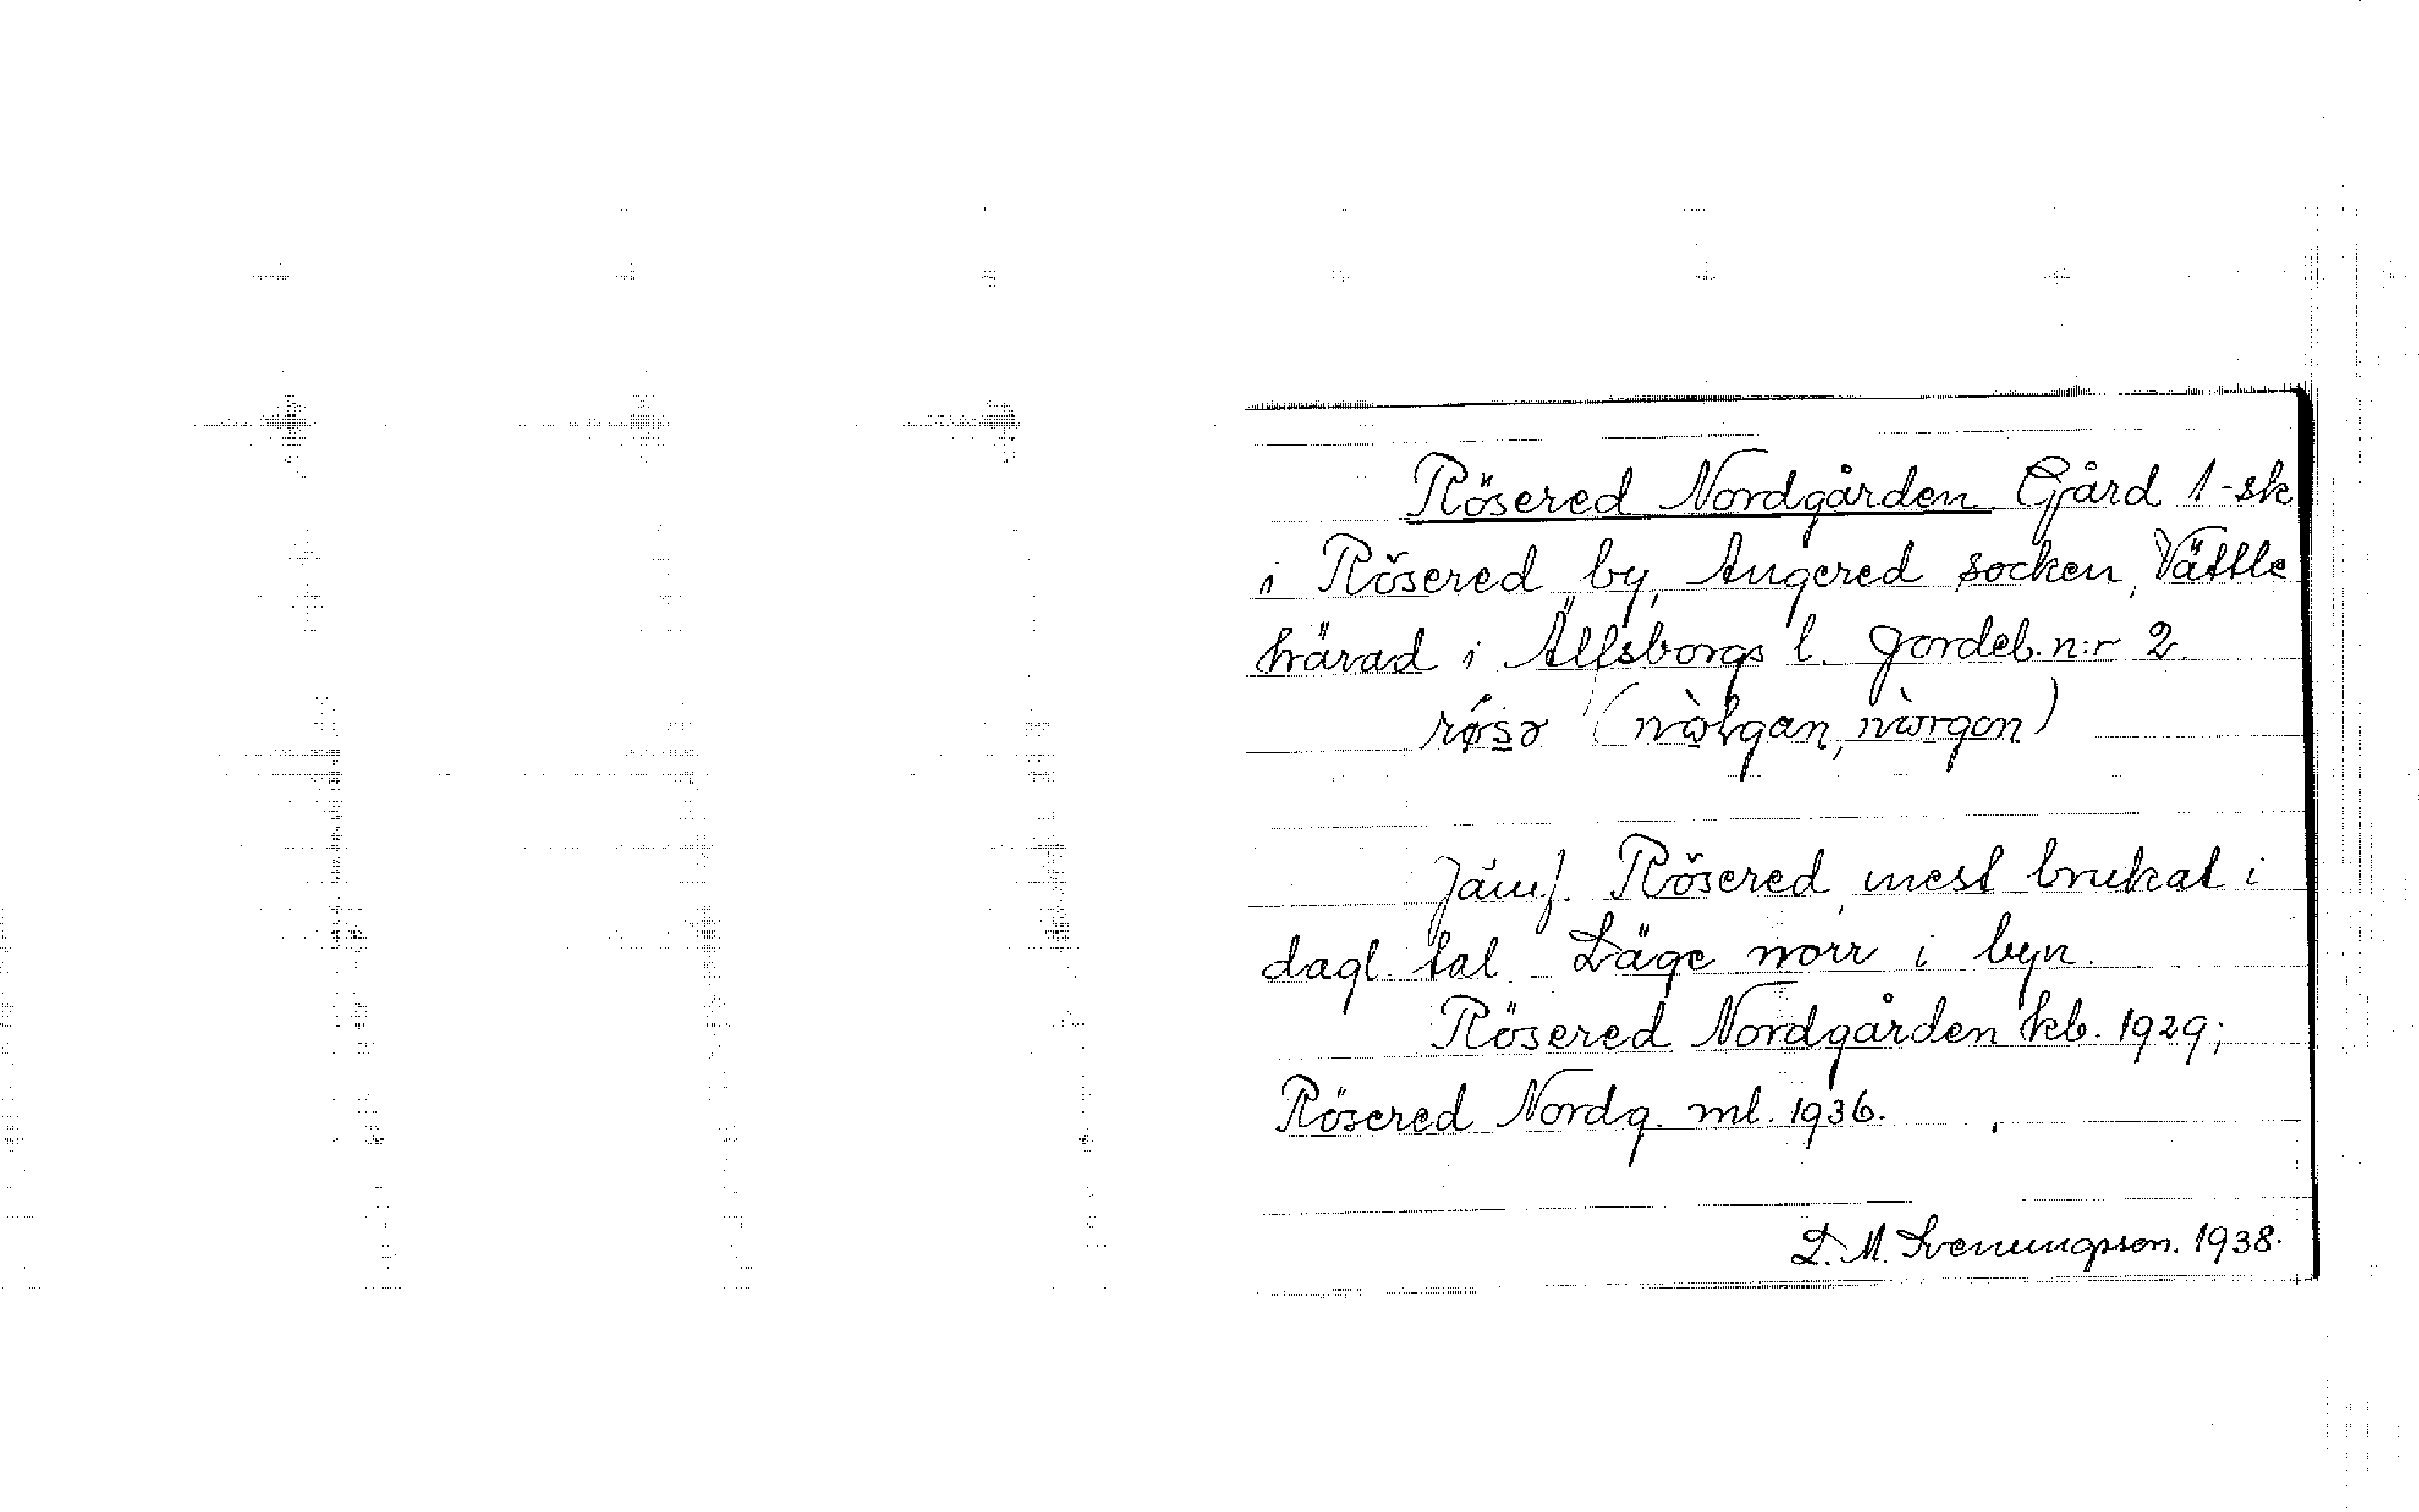 Rösered Nordgården Gård 1-sk
i Rösered by, Angered socken, Vättle
härad i Älfsborgs l. Jordeb. n:r 2
røsə (nòlgan, nòrgon)
Jämf. Rösered, mest brukat i
dagl. tal. Läge norr i byn.
Rösered Nordgården kb. 1929;
Rösered Nordg. ml. 1936.
L. M. Svenungsson. 1938.